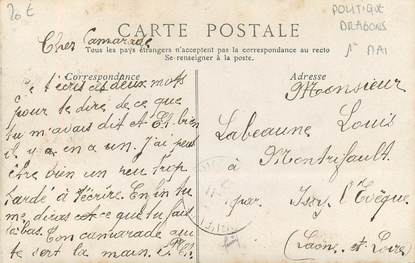 20 E
POLITIQUE
DRAGONS
1er MAI
CARTE POSTALE
Tous les pays étrangers n'acceptent pas la correspondance au recto
Se renseigner à la poste.
Correspondance
Adresse
Cher Camarade
Je t'écris ces deux mots
pour te dire de ce que
tu m'avais dit et Et bien
il y a en a un. J'ai peut
être bien un peu trop
tardé à t'écrire. Enfin tu
me diras ce que tu fais
là bas. Ton camarade qui
te sert la main.
Monsieur
Labeaune Louis
à Montrifault
par Issy l'Evêque
(Saône et Loire)